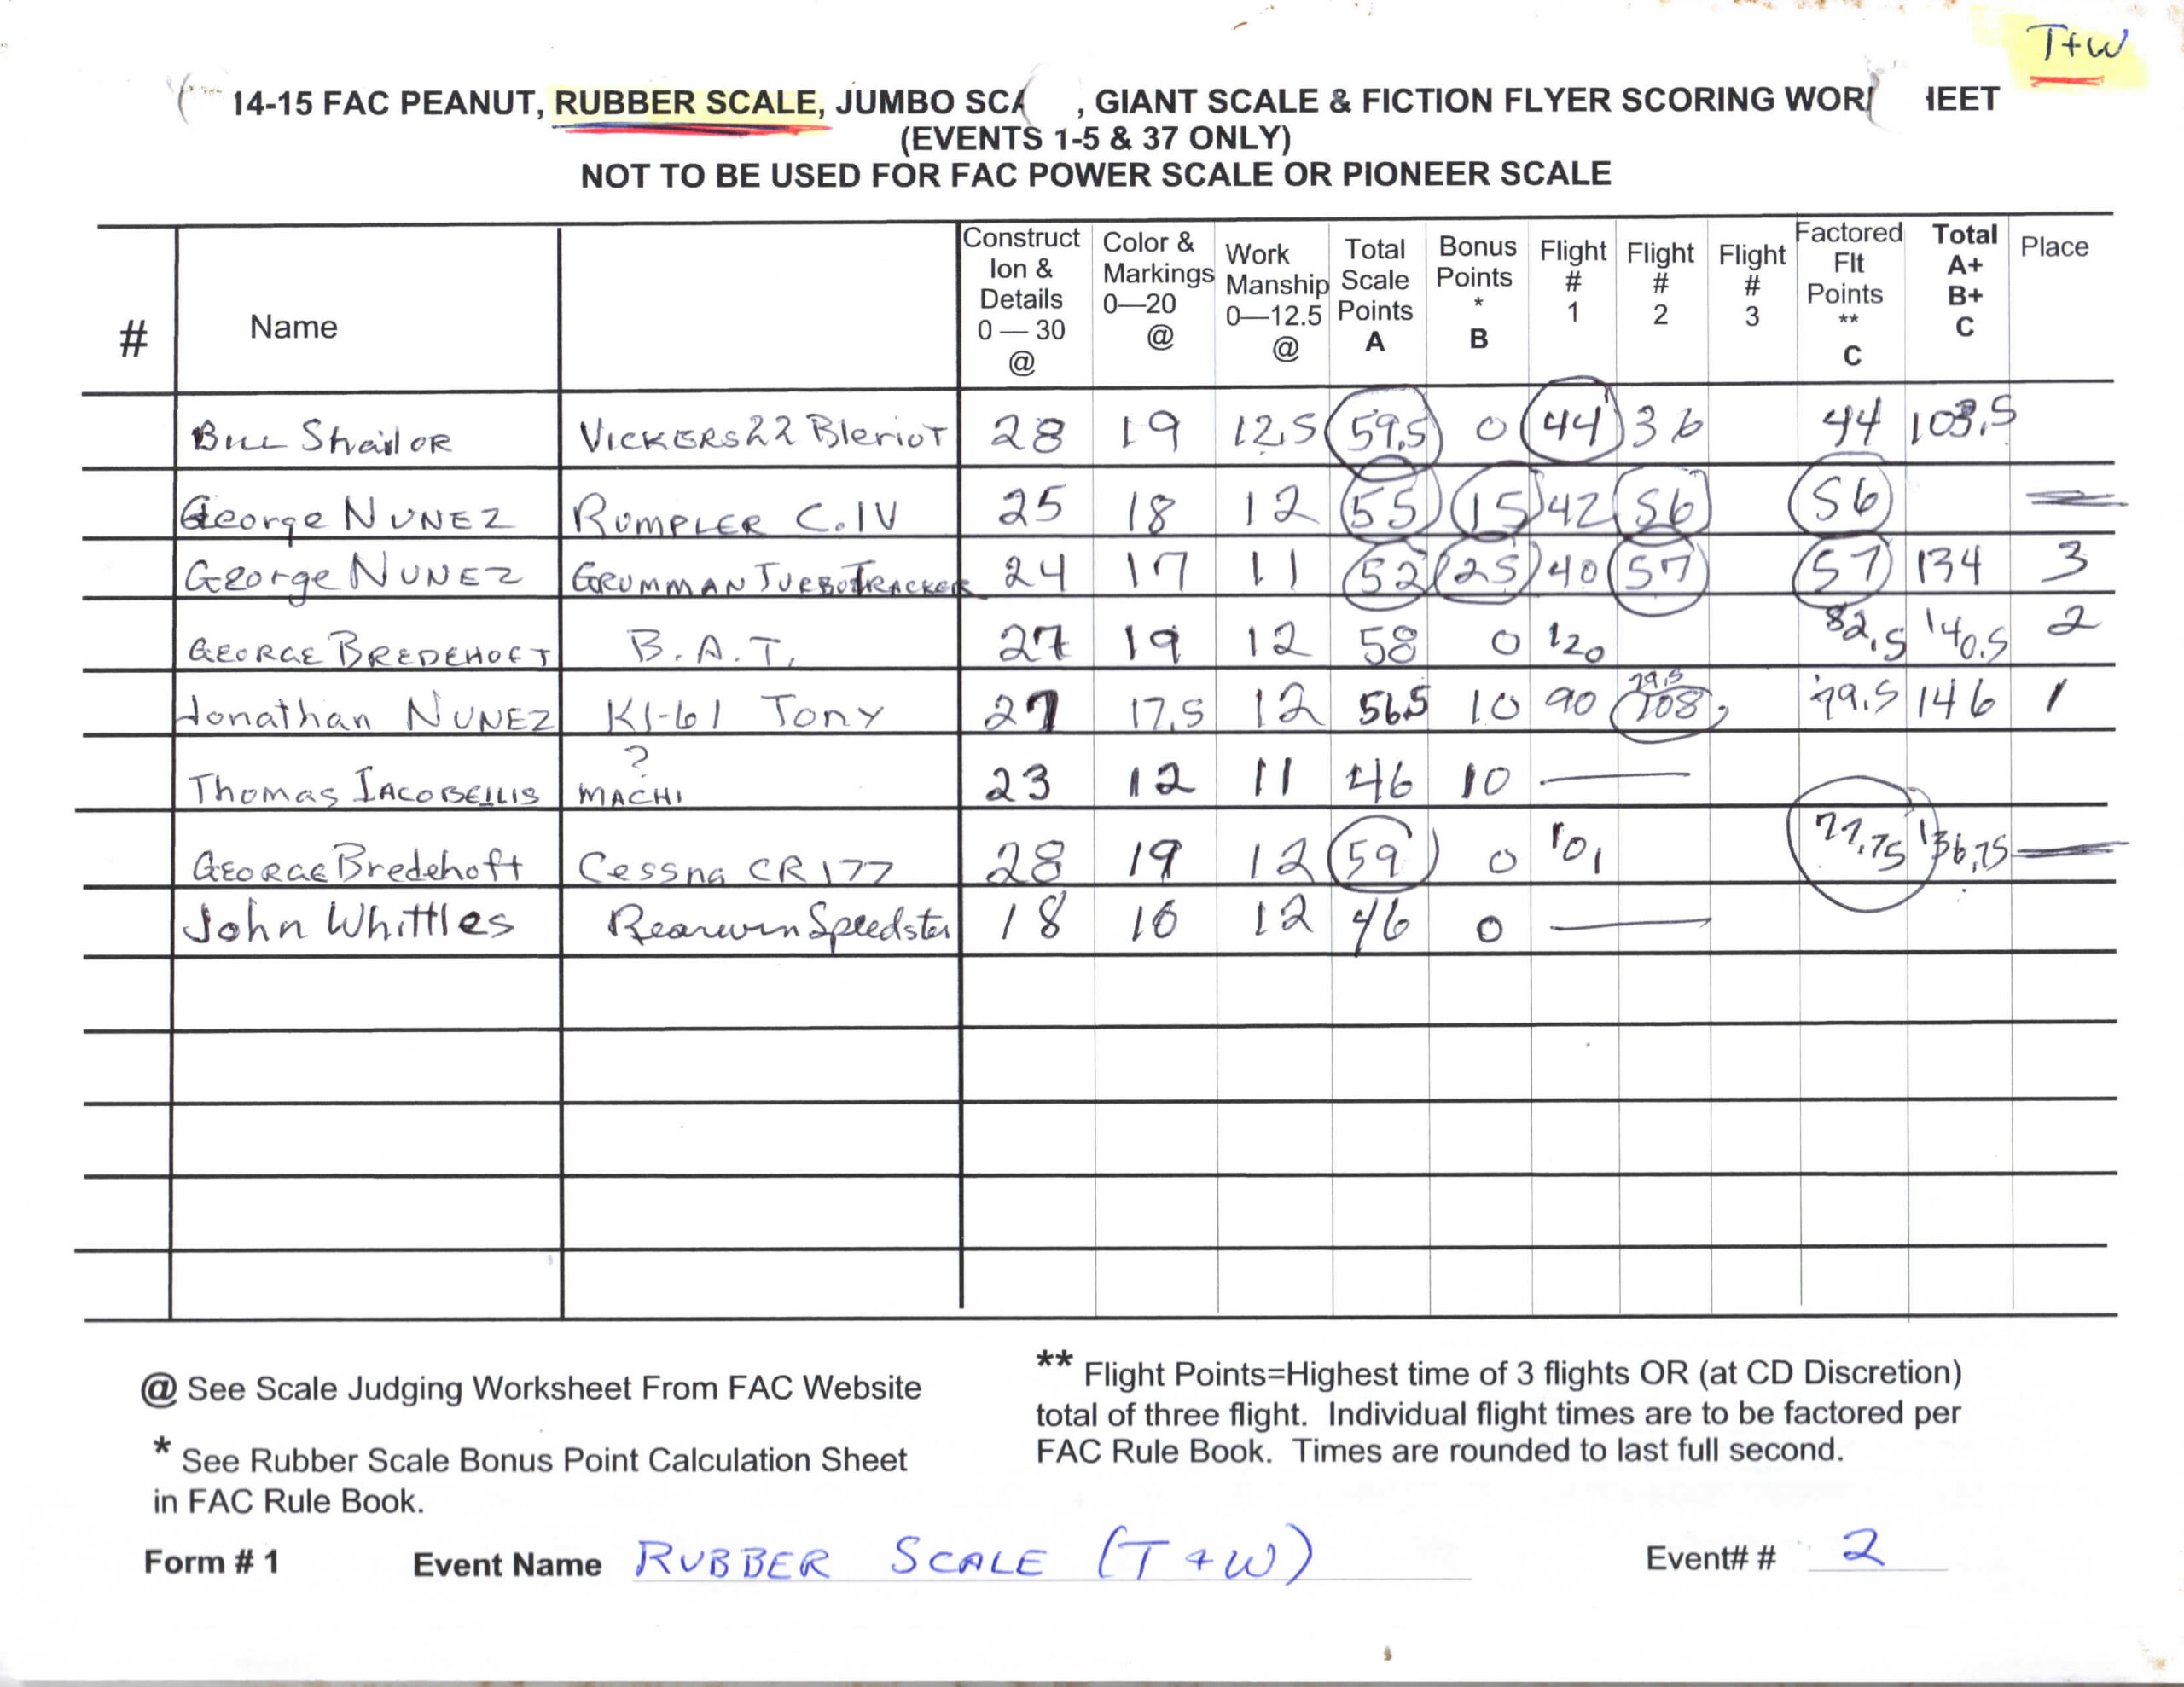 T+W
14-15 FAC PEANUT, RUBBER SCALE, JUMBO SCA , GIANT SCALE & FICTION FLYER SCORING WOR HEET
(EVENTS 1-5 & 37 ONLY)
NOT TO BE USED FOR FAC POWER SCALE OR PIONEER SCALE
# Name Construct Ion & Details 0 — 30 @ Color & Markings 0—20 @ Work Manship 0—12.5 @ Total Scale Points A Bonus Points * B Flight # 1 Flight # 2 Flight # 3 Factored Flt Points ** C Total A+ B+ C Place
Bill Shailor Vickers 22 Bleriot 28 19 12.5 59.5 0 44 36 44 103.5
George Nunez Rumpler C.IV 25 18 12 55 15 42 56 56
George Nunez Grumman TurboTracker 24 17 11 52 25 40 57 57 134 3
George Bredehoft B.A.T. 27 19 12 58 0 120 82.5 140.5 2
Jonathan Nunez KI-61 Tony 27 17.5 12 56.5 10 90 79.5 108 79.5 146 1
Thomas Iacobellis ? Machi 23 12 11 46 10 —
George Bredehoft Cessna CR177 28 19 12 59 0 101 77.75 136.75
John Whittles Rearwin Speedster 18 16 12 46 0 —
@ See Scale Judging Worksheet From FAC Website
* See Rubber Scale Bonus Point Calculation Sheet
in FAC Rule Book.
** Flight Points=Highest time of 3 flights OR (at CD Discretion)
total of three flight. Individual flight times are to be factored per
FAC Rule Book. Times are rounded to last full second.
Form # 1 Event Name RUBBER SCALE (T+W) Event# # 2